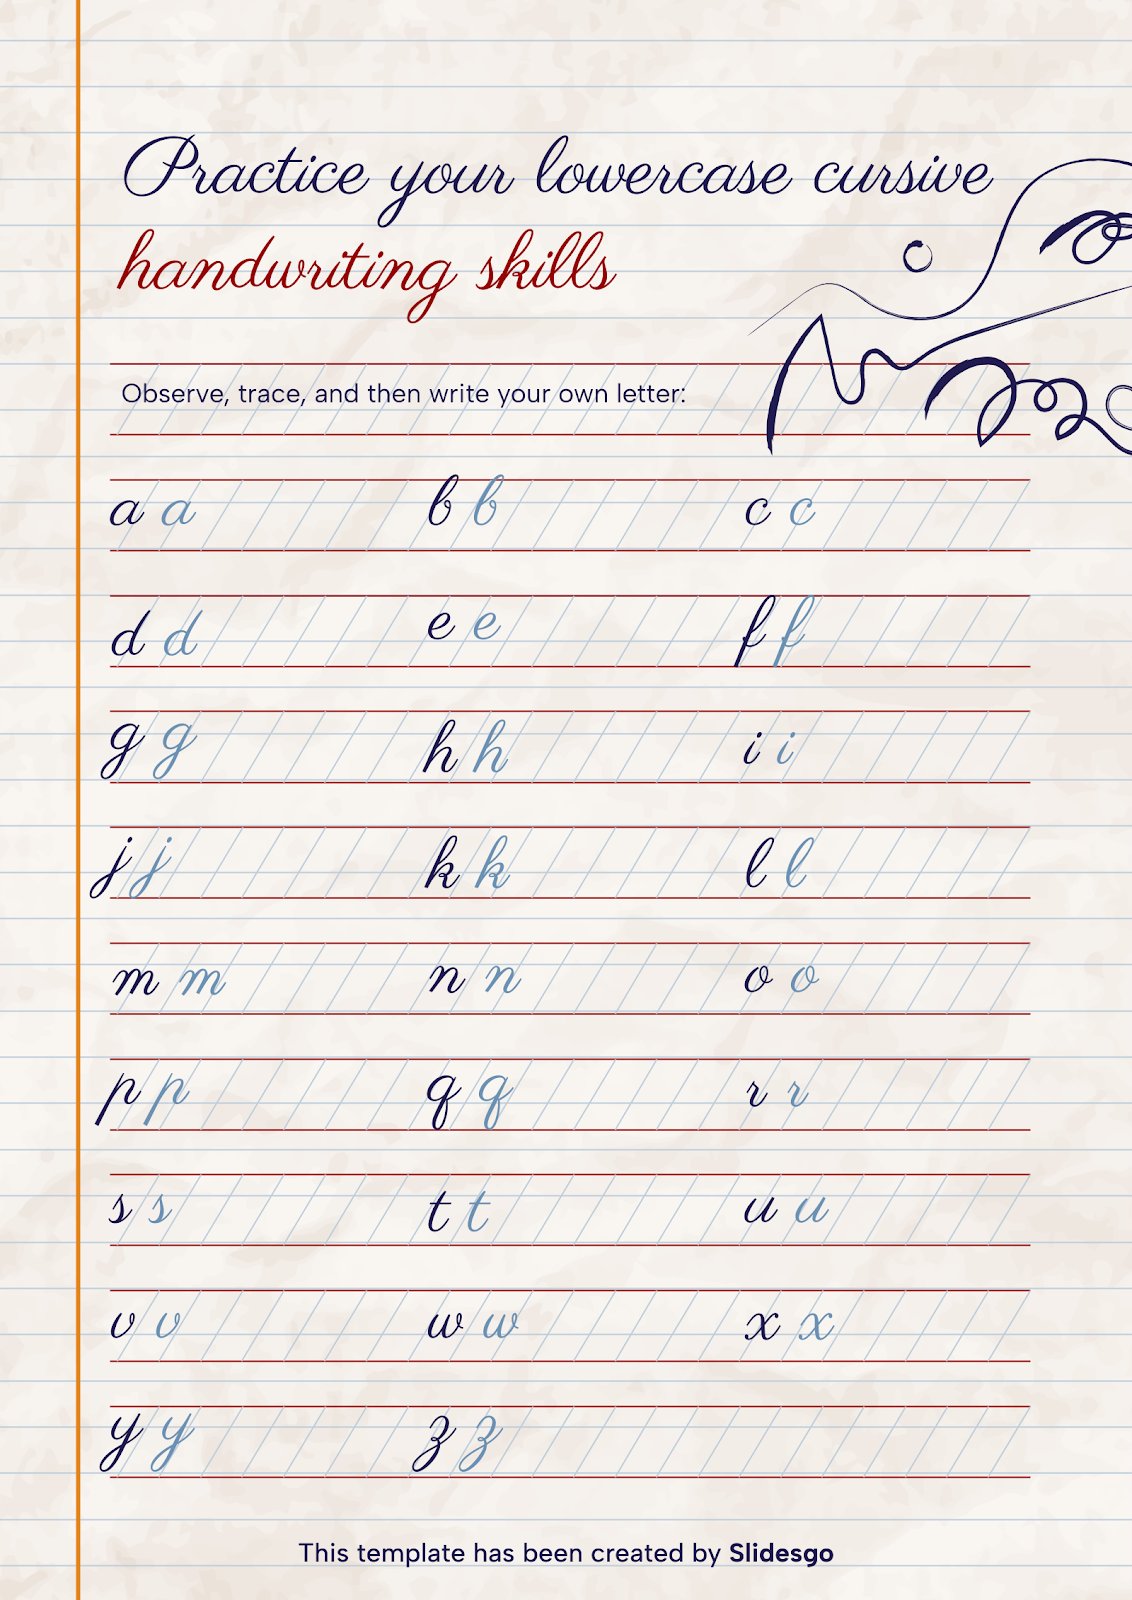 Practice your lowercase cursive
handwriting skills
Observe, trace, and then write your own letter:
a a b b c c
d d e e f f
g g h h i i
j j k k l l
m m n n o o
p p q q r r
s s t t u u
v v w w x x
y y z z
This template has been created by Slidesgo